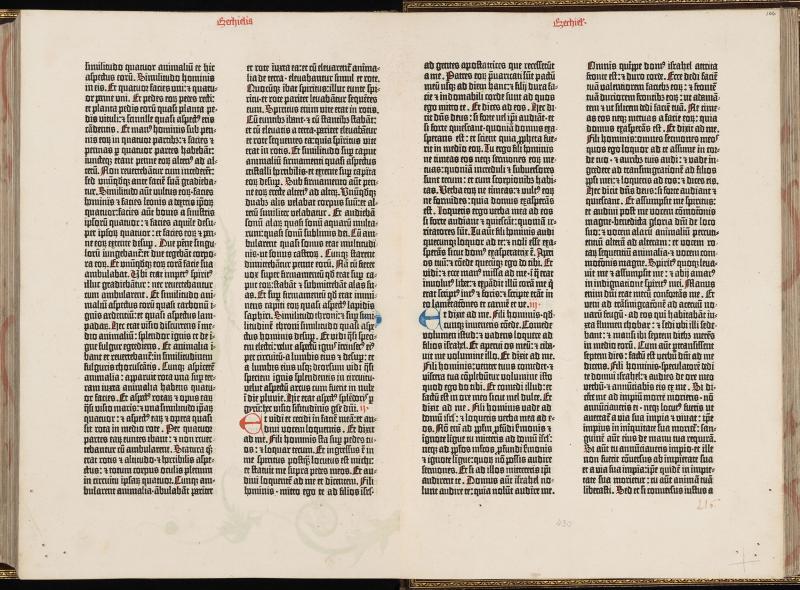 Ezechielis
similitudo quatuor animaliū et hic
aspectus eorū. Similitudo hominis
in eis. Et quatuor facies uni: ⁊ quatu-
or penne uni. Et pedes eorū pedes recti:
et planta pedis eorū quasi planta pe-
dis vituli: ⁊ scintille quasi aspectꝰ eris
cādentis. Et manꝰ hominis sub pen-
nis eorū in quatuor partibꝫ: ⁊ facies ⁊
pennas ꝑ quatuor partes habebāt:
iuncteqꝫ erant penne eorū alterꝰ ad al-
terū. Non reuertebantur cum incederēt:
sed unūqdqꝫ ante faciē suā gradieba-
tur. Similitudo aūt vultus eorū: facies
hominis ⁊ facies leonis a dextris ipōrū
quatuor: facies aūt bouis a sinistris
ipsorū quatuor: ⁊ facies aquile desu-
per ipsorū quatuor: et facies eorū et pen-
ne eorū extente desup. Due pēne singu-
lorū iungebant̄: et due tegebāt corpo-
ra eorū. Et unūqdqꝫ eorū corā facie sua
ambulabat. Ubi erat impetꝰ spiritꝰ
illuc gradiebant̄: nec reuertebantur
cum ambularent. Et similitudo ani-
maliū: aspectus eorū quasi carbonū i-
gnis ardentiū: et quasi aspectus lam-
padarū. Hec erat visio discurrens ī me-
dio animaliū: splendor ignis et de i-
gne fulgur egrediens. Et animalia i-
bant et reuertebant̄ in similitudinem
fulguris choruscātis. Cunqꝫ aspicerē
animalia: apparuit rota una sup ter-
ram iuxta animalia habens quatu-
or facies. Et aspectꝰ rotarū ⁊ opus earū
q̄si visio maris: ⁊ una similitudo ipsarū
quatuor: ⁊ aspectꝰ earū ⁊ opera quasi
sit rota in medio rote. Per quatuor
partes earū euntes ibant: ⁊ non reuer-
tebantur cū ambularent. Statura q̄ꝫ
erat rotis ⁊ altitudo ⁊ horribilis aspe-
ctus: ⁊ totum corpus oculis plenum
in circuitu ipsarū quatuor. Cunqꝫ am-
bularent animalia: ābulabāt pariter
et rote iuxta ea: et cū eleuarent̄ anima-
lia de terra: eleuabantur simul et rote.
Quocūqꝫ ibat spiritus: illuc eunte spi-
ritu: et rote pariter leuabātur sequētes
eum. Spiritus enim vite erat in rotis.
Cū euntibꝫ ibant: ⁊ cū stantibꝫ stabāt:
et cū eleuatis a terra: pariter eleuabātur
et rote sequentes ea: quia spiritus vite
erat in rotis. Et similitudo sup caput
animaliū firmamenti quasi aspectus
cristalli horribilis: et extente sup capita
eorū desup. Sub firmamento aūt pen-
ne eorū recte alterꝰ ad alterū. Unūqdqꝫ
duabꝫ alis velabat corpus suū: et al-
terū similiter velabatur. Et audiebā
sonū alarū quasi sonū aquarū multa-
rum: quasi sonū sublimis dei. Cū am-
bularent quasi sonus erat multitudi-
nis: ut sonus castrorū. Cunqꝫ starent
dimittebant̄ penne eorū. Nā cū fieret
vox super firmamentū qd̄ erat sup ca-
put eorū: stabāt ⁊ submittebāt alas su-
as. Et sup firmamentū qd̄ erat immi-
nens capiti eorū quasi aspectꝰ lapidis
saphiri. Similitudo throni: ⁊ sup simi-
litudinē throni similitudo quasi aspe-
ctus hominis desup. Et vidi q̄si speci-
em electri: velut aspectū ignis intrinsecꝰ eiꝰ
per circuitū: a lumbis eius ⁊ desup: et
a lumbis eius usqꝫ deorsum vidi q̄si
speciem ignis splendentis in circuitu:
velut aspectū arcus cum fuerit in nube
in die pluuie. Hic erat aspectꝰ splēdoris p
gyrū: hec visio silitudinis glorie dn̄i. ii·
Et vidi et cecidi in faciē meā: et au-
diui vocem loquentis. Et dixit
ad me. Fili hominis sta sup pedes tu-
os: ⁊ loquar tecum. Et ingressus ē in
me spiritus postqꝫ locutus est michi:
et statuit me supra pedes meos. Et au-
diui loquentē ad me et dicentem. Fili
hominis: mitto ego te ad filios isrl':
Ezechiel·
ad gentes apostatrices que recesserūt
a me. Patres eorū p̄uaricati sūt pactū
meū usqꝫ ad diem hanc: ⁊ filij dura fa-
cie ⁊ indomabili corde sunt ad quos
ego mitto te. Et dices ad eos. Hec di-
cit dn̄s deus: si forte vel ip̄i audiāt: et
si forte quiescant: quoniā domus exa-
sperans est: et scient quia ꝓpheta fue-
rit in medio eorū. Tu ergo fili hominis
ne timeas eos: neqꝫ sermones eorū me-
tuas: quoniā increduli ⁊ subuersores
sunt tecum: et cum scorpionibꝫ habi-
tas. Verba eorū ne timeas: ⁊ vultꝰ eorū
ne formides: quia domus exasperans
est. Loqueris ergo verba mea ad eos
si forte audiant ⁊ quiescāt: quoniā ir-
ritatores sūt. Tu aūt fili hominis audi
quecunqꝫ loquor ad te: ⁊ noli esse exa-
sperās sicut domꝰ exasperatrix ē. Aperi
os tuū: ⁊ cōede quecūqꝫ ego do tibi. Et
vidi: ⁊ ecce manꝰ missa ad me: ī q̄ erat
inuolutꝰ liber: ⁊ expādit illū corā me q̄
erat scriptꝰ intꝰ ⁊ foris: ⁊ scripte erāt in
eo lamentatōnes et carmē et ve. iii·
Et dixit ad me. Fili hominis: qd-
cunqꝫ inueneris cōede. Comede
volumen istud: ⁊ vadens loquere ad
filios israhel. Et aperui os meū: ⁊ ciba-
uit me volumine illo. Et dixit ad me.
Fili hominis: venter tuus comedet: ⁊
viscera tua cōplebūtur volumine isto
quod ego do tibi. Et comedi illud: et
factū est in ore meo sicut mel dulce. Et
dixit ad me. Fili hominis vade ad
domū isrl': ⁊ loqueris verba mea ad e-
os. Nō em̄ ad ppl̄m ꝓfūdi s̄monis ⁊
ignote ligue tu mitteris ad domū isrl':
neqꝫ ad pplōs multos ꝓfundi s̄monis
⁊ ignote ligue: quoꝝ nō possis audire
sermones. Et si ad illos mittereris ip̄i
audirent te. Domus aūt israhel no-
lunt audire te: quia nolūt audire me.
Omnis quippe domꝰ israhel attrita
fronte est: ⁊ duro corde. Ecce dedi faciē
tuā valentiorem faciebꝫ eorū: ⁊ frontē
tuā duriorem frontibꝫ eorū: ut adamā-
tem ⁊ ut silicem dedi faciē tuā. Ne time-
as eos neqꝫ metuas a facie eorū: quia
domus exasperās est. Et dixit ad me.
Fili hominis: omnes sermones meos
quos ego loquor ad te assume in cor-
de tuo · ⁊ auribꝫ tuis audi: ⁊ vade in-
gredere ad transmigrationē ad filios
ppl̄i tui: ⁊ loqueris ad eos: ⁊ dices eis.
Hec dicit dn̄s deus: si forte audiant ⁊
quiescant. Et assumpsit me spiritus:
et audiui post me vocem cōmotionis
magne: benedicta gloria dn̄i de loco
suo: ⁊ vocem alarū animaliū percuti-
entiū alterā ad alteram: et vocem ro-
tarū sequentiū animalia · ⁊ vocem com-
motōnis magne. Spiritꝰ quoqꝫ leua-
uit me ⁊ assumpsit me: ⁊ abij amarꝰ
in indignatione spiritꝰ mei. Manus
enim dn̄i erat mecū confortās me. Et
veni ad trāsmigrationē ad aceruū no-
uarū frugū · ad eos qui habitabāt iu-
xta flumen chobar: ⁊ sedi ubi illi sede-
bant: ⁊ mansi ibi septem diebꝫ merēs
in medio eorū. Cum aūt pertransissent
septem dies: factū est verbū dn̄i ad me
dicens. Fili hominis: speculatorē dedi
te domui israhel: ⁊ audies de ore meo
verbū: ⁊ annūciabis eis ex me. Si di-
cēte me ad impiū morte morieris: nō
annūciaueris ei · neqꝫ locutꝰ fueris ut
auertat̄ a via sua impia ⁊ viuat: ip̄e
impius in iniquitate sua moriet̄: san-
guinē aūt eius de manu tua requirā.
Si aūt tu annūciaueris impio: et ille
non fuerit cōuersus ab impietate sua
et a via sua impia: ip̄e quidē in impie-
tate sua morietur: tu aūt animā tuā
liberasti. Sed et si conuersus iustus a